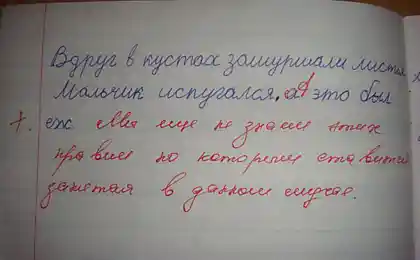 Вдруг в кустах зашуршали листья.
Мальчик испугался, а это был
ёж Мы еще не знаем этих
правил по которым ставится
запятая в данном случае.